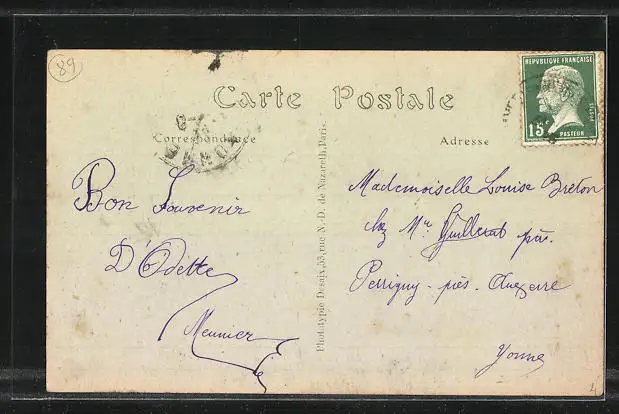 89
Carte Postale
REPVBLIQUE FRANÇAISE
15c
POSTES
PASTEUR
Correspondance
Adresse
Bon Souvenir
D'Odette
Meunier
Phototypie Desaix, 53, rue N.-D. de Nazareth, Paris.
Mademoiselle Louise Breton
chez Mr Guillerat par
Perrigny-près-Auxerre
Yonne